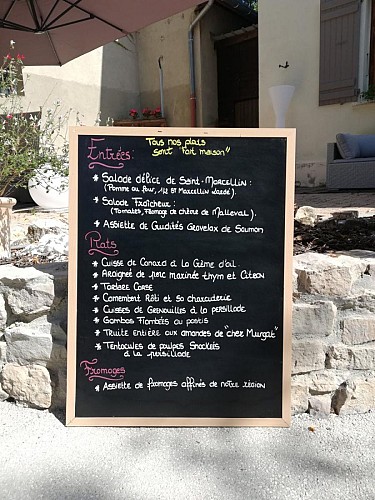 Tous nos plats
sont "fait maison"
Entrées:
* Salade délice de Saint-Marcellin :
(Pomme au four, 1/2 St Marcellin lardé).
* Salade Fraîcheur :
(Tomates, Fromage de chèvre de Malleval).
* Assiette de Crudités Gravelax de Saumon
Plats
* Cuisse de Canard à la Crème d'ail
* Araignée de porc marinée thym et Citron
* Tartare Corse
* Camembert Rôti et sa charcuterie
* Cuisses de Grenouilles à la persillade
* Gambas Flambées au pastis
* Truite Entière aux amandes de "chez Murgat"
* Tentacules de poulpes Snackées
à la persillade
Fromages
* Assiette de fromages affinés de notre région